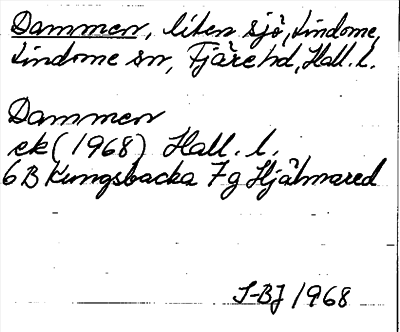 Dammen, liten sjö, Lindome,
Lindome sn, Fjäre hd, Hall. l.
Dammen
ek (1968) Hall. l.
6 B Kungsbacka 7 g Hjälmared
S-BJ 1968